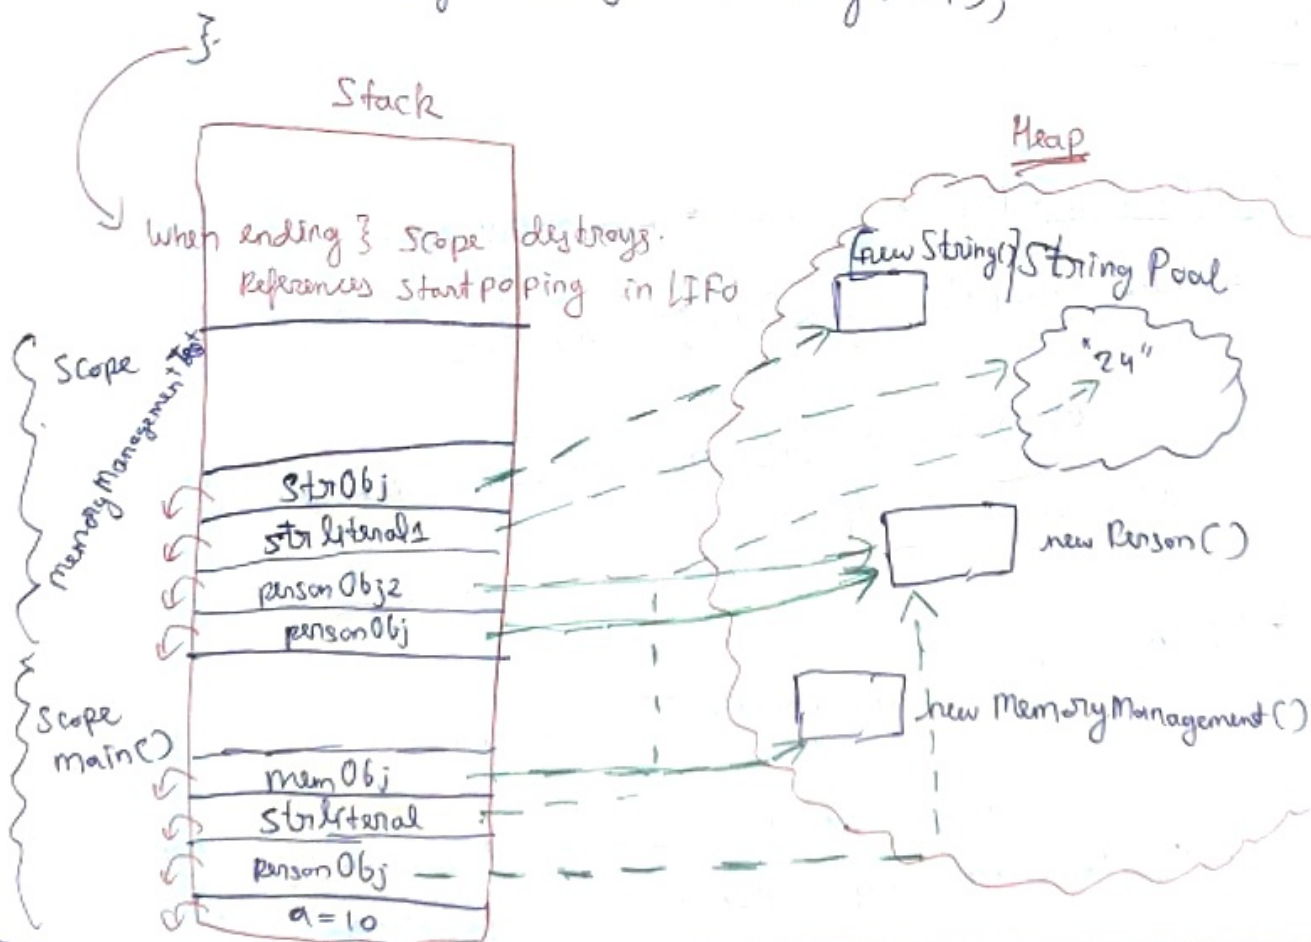 }
Stack
Heap
When ending } scope destroys.
References start poping in LIFO
[new String()] String Pool
"24"
Scope
MemoryManagement
strObj
strliteral1
personObj2
personObj
new Person()
Scope
main()
memObj
new MemoryManagement()
strliteral
PersonObj
a=10